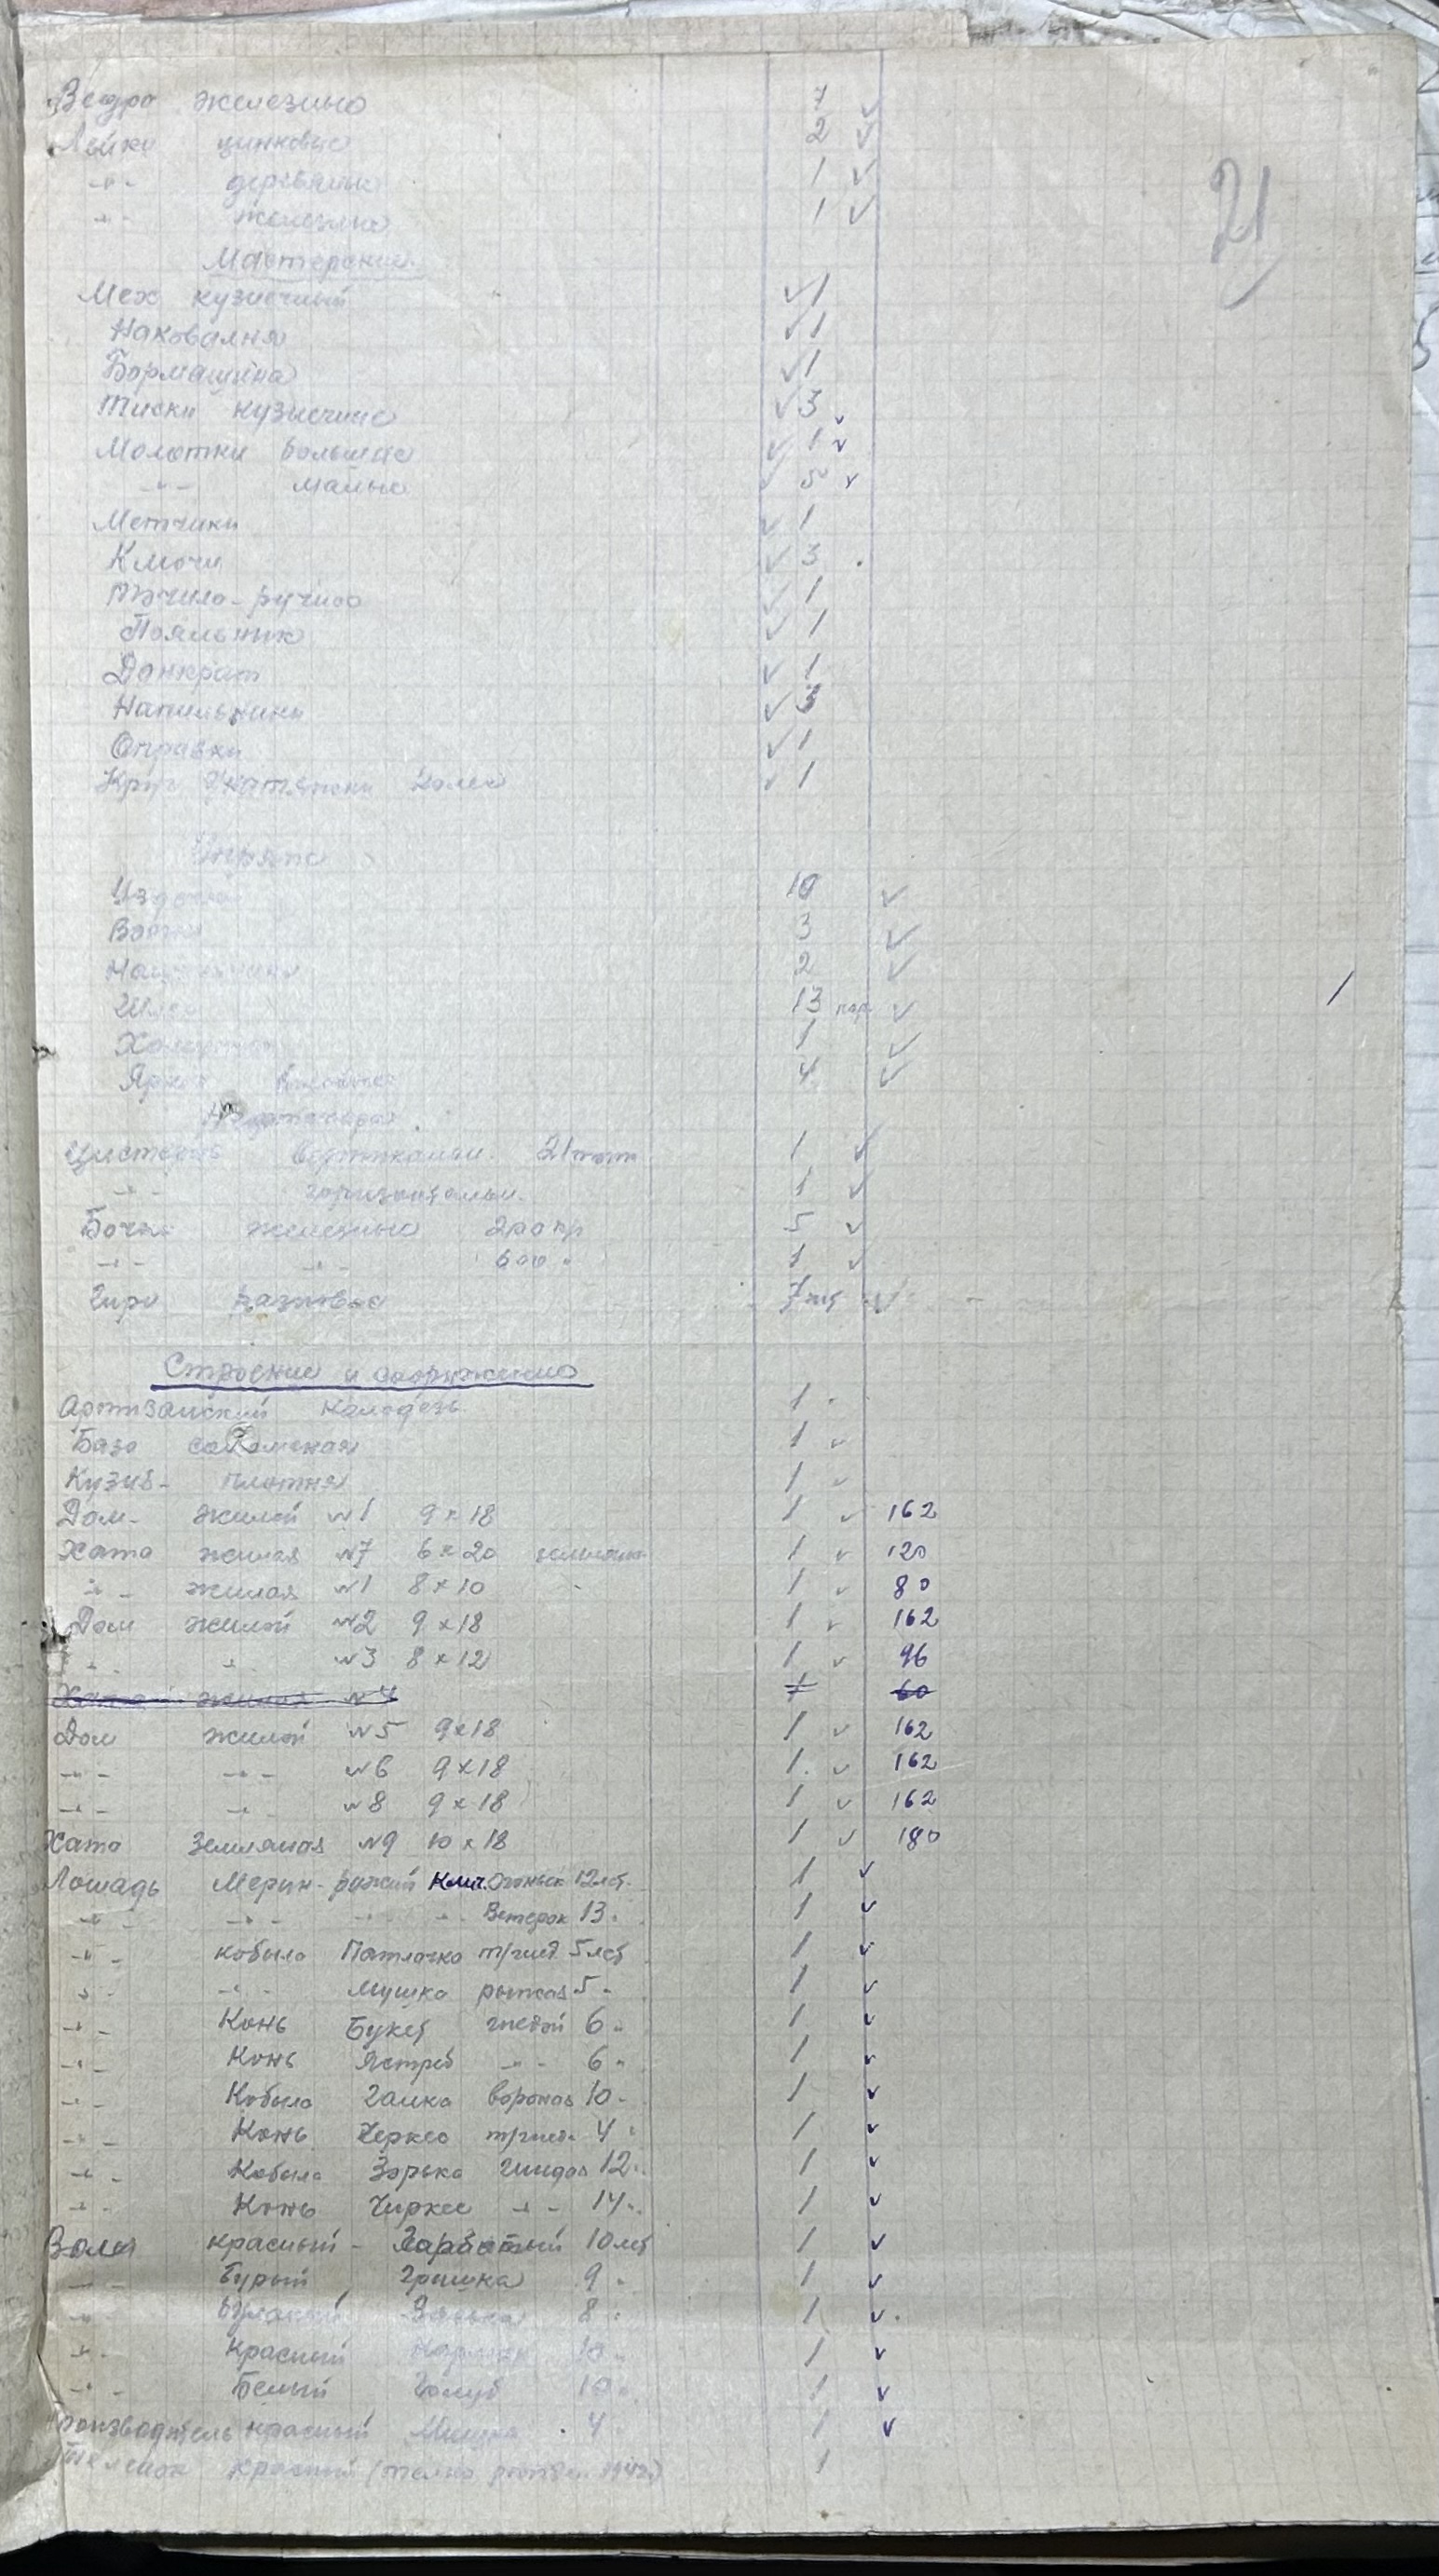 21
Ведра железные 7 ✓
Лейки цинковые 2 ✓
-"- деревянные 1 ✓
-"- железные 1 ✓
Мастерские.
Мех кузнечный ✓ 1
Наковалня ✓ 1
Бормашина ✓ 1
Тиски кузнечные ✓ 3
Молотки большие ✓ 1 ✓
-"- малые ✓ 5 ✓
Метчики ✓ 1
Ключи ✓ 3
Точило-ручное ✓ 1
Паяльник ✓ 1
Данкрат ✓ 1
Напильники ✓ 3
Оправки ✓ 1
Круг колес ✓ 1
Упряжь
Уздечки 10 ✓
Вожжи 3 ✓
2 ✓
Шлеи 13 пар. ✓
1 ✓
Ярма 4 ✓
Цистерна вертикальн. 21 тонн 1 ✓
-"- горизонтальн. 1 ✓
Бочки железные 200 1 5 ✓
-"- -"- 600 " 1 ✓
Гири разновые 7 шт ✓
Строение и сооружение
Артизанский колодезь 1
База саманная 1 ✓
Кузня- плотня 1 ✓
Дом- жилой №1 9×18 1 ✓ 162
Хата жилая №7 6×20 1 ✓ 120
-"- жилая №1 8×10 1 ✓ 80
Дом жилой №2 9×18 1 ✓ 162
" " №3 8×12 1 ✓ 96
Хата жилая №4 1 60
Дом жилой №5 9×18 1 ✓ 162
-"- -"- №6 9×18 1 ✓ 162
-"- -"- №8 9×18 1 ✓ 162
Хата Земляная №9 10×18 1 ✓ 180
Лошадь Мерин- рыжий клич. Огонёк 12 лет. 1 ✓
-"- -"- -"- -"- Ветерок 13 " 1 ✓
-"- кобыла Патлачка т/гнед 5 лет 1 ✓
-"- -"- Мушка рыжая 5 " 1 ✓
-"- Конь Букет гнедой 6 " 1 ✓
-"- Конь Ястреб -"- 6 " 1 ✓
-"- Кобыла Галка вороная 10 " 1 ✓
-"- Конь Черкес т/гнед. 4 " 1 ✓
-"- Кобыла Зорька гнидая 12 " 1 ✓
-"- Конь Чиркес -"- 14 " 1 ✓
Волы красный - Гарбатый 10 лет 1 ✓
-"- Бурый Гришка 9 " 1 ✓
-"- 8 " 1 ✓
-"- Красный 10 " 1 ✓
-"- Белый Голуб 10 " 1 ✓
Производитель красный Мишка 4 1 ✓
Теленок красный (телка рожден. 1942г) 1